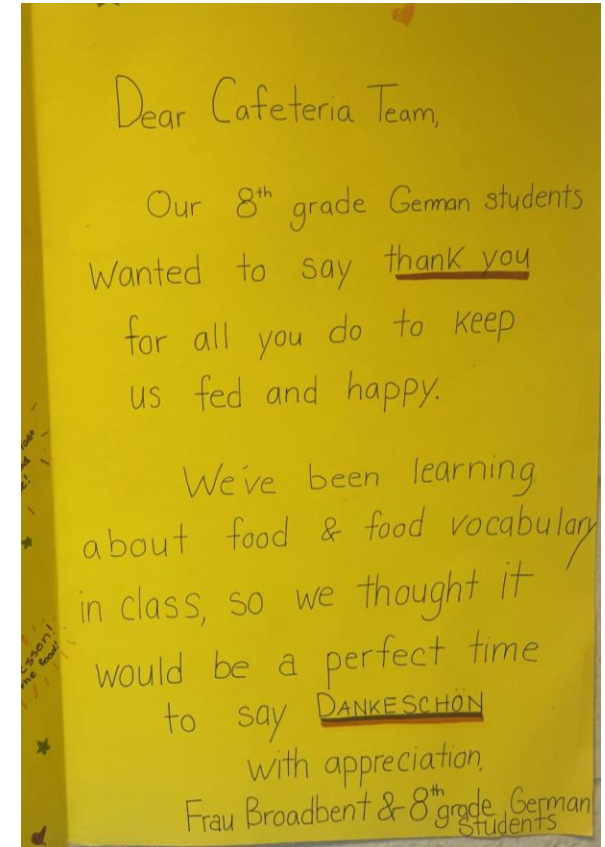 Dear Cafeteria Team,
Our 8th grade German students
wanted to say thank you
for all you do to keep
us fed and happy.
We've been learning
about food & food vocabulary
in class, so we thought it
would be a perfect time
to say DANKESCHÖN
with appreciation,
Frau Broadbent & 8th grade German
students